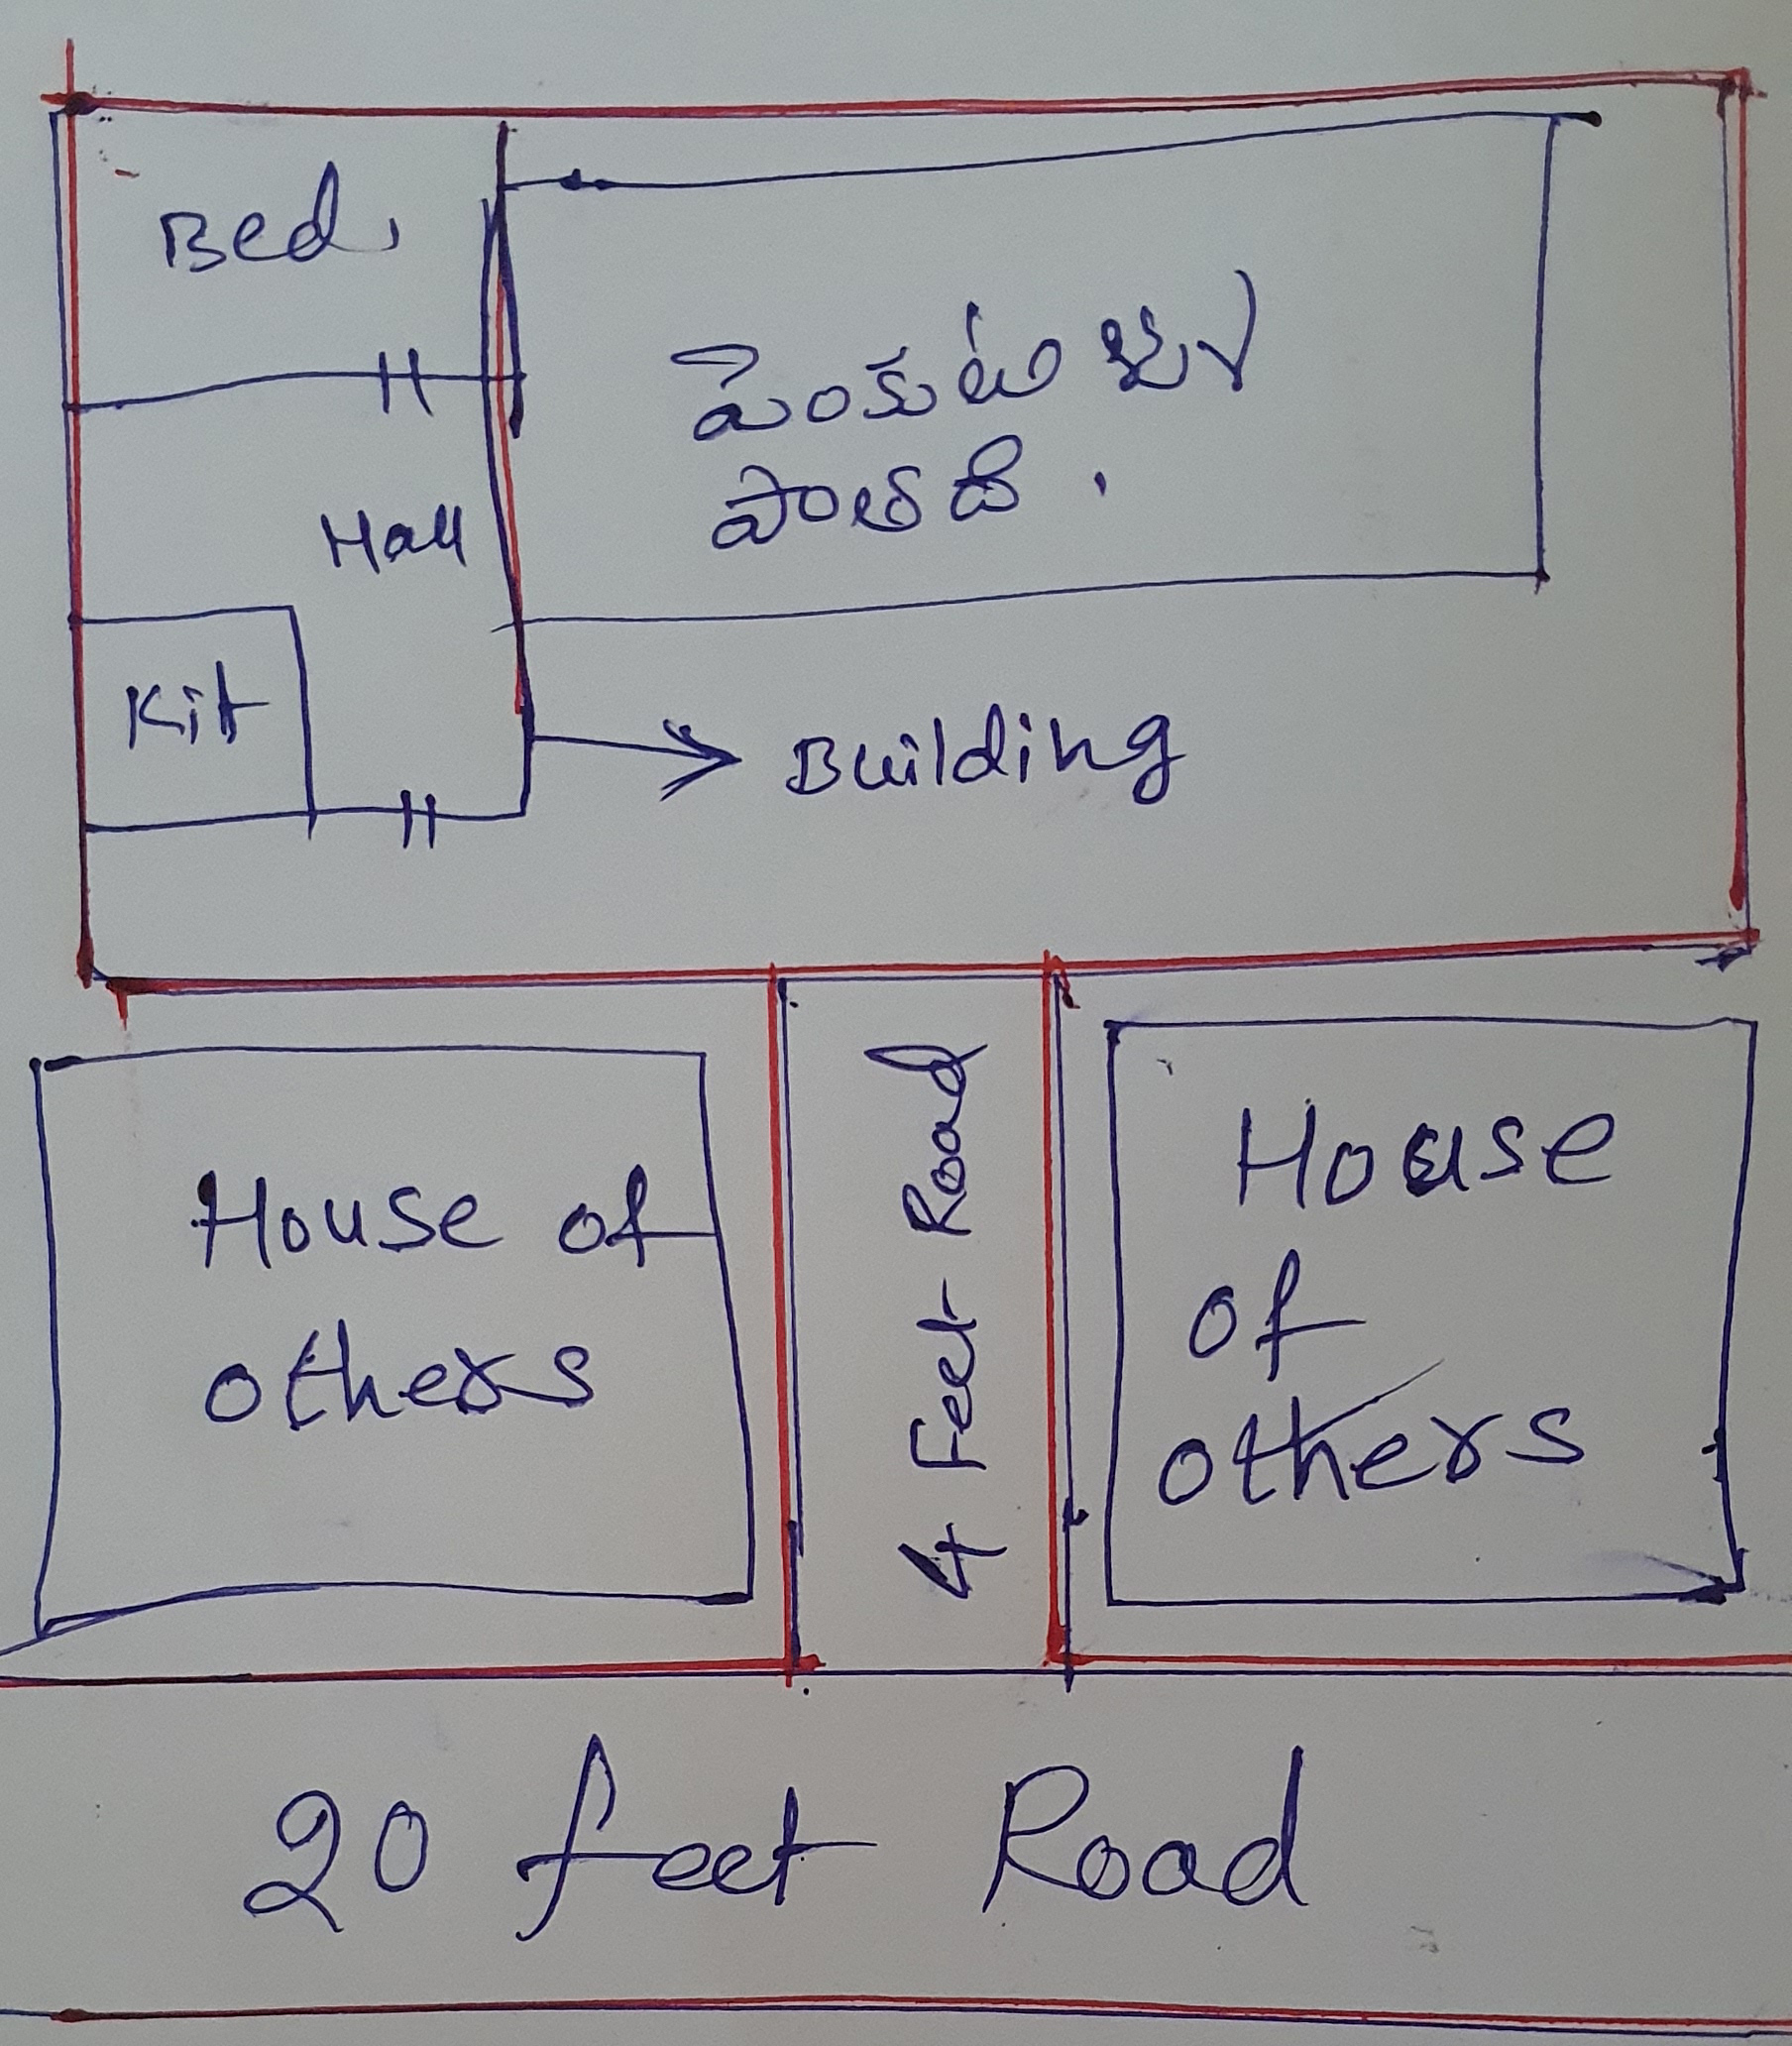 Bed,
పెంకుటిల్లు
పాతది.
Hall
Kit
Building
House of
others
4 Feet Road
House
of
others
20 feet Road